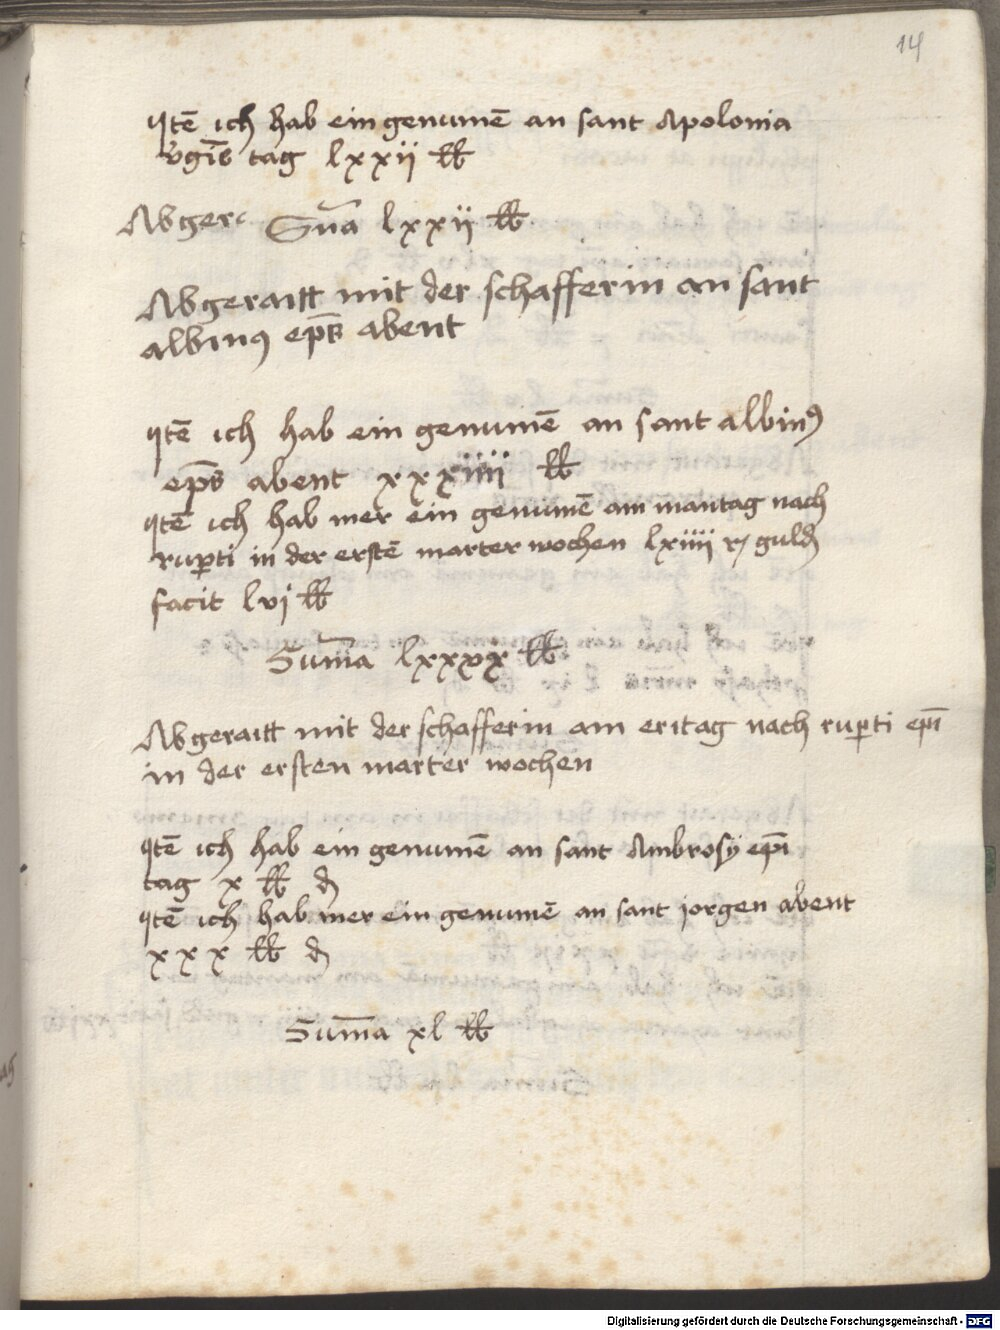 14
Itē ich hab ein genumē an sant Apolonia
v̄gīs tag lxxii ℔
Abger Sūa lxxij ℔
Abgeraitt mit der schafferin an sant
albinꝰ ep̄s abent
Itē ich hab ein genumē an sant albinꝰ
ep̄s abent xxxiiii ℔
Itē ich hab mer ein genumē am mantag nach
ruꝑti in der erstē marter wochen lxiiii r gulđ
facit lvj ℔
Sum̄a lxxxx ℔
Abgeraitt mit der schafferin am eritag nach ruꝑti ep̄i
in der ersten marter wochen
Itē ich hab ein genumē an sant Ambrosÿ ep̄i
tag x ℔ ₰
Itē ich hab mer ein genumē an sant jorgen abent
xxx ℔ ₰
Sum̄a xl ℔
Digitalisierung gefördert durch die Deutsche Forschungsgemeinschaft - DFG